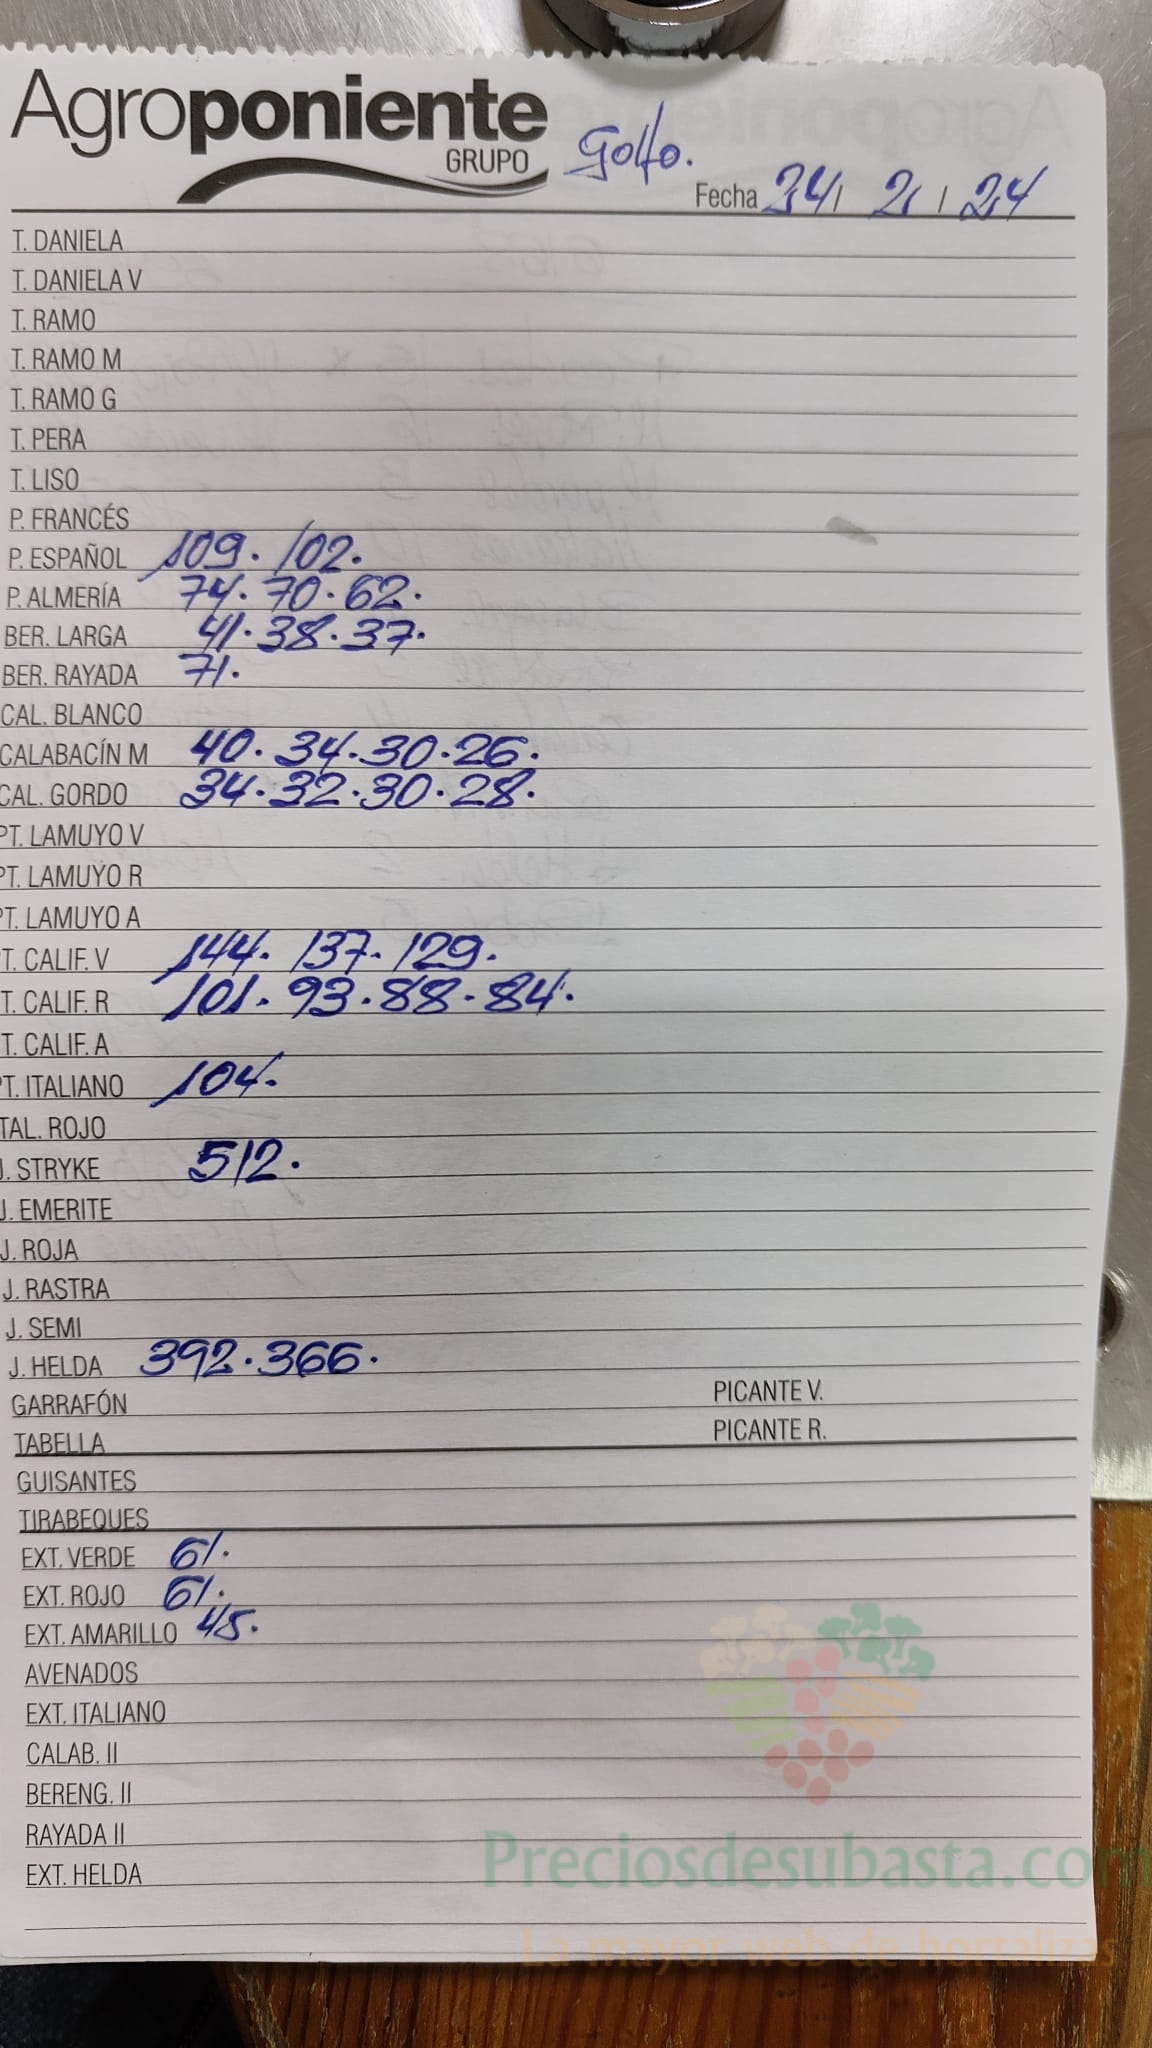 Agroponiente
GRUPO
Golfo.
Fecha 24/ 2 / 24
T. DANIELA
T. DANIELA V
T. RAMO
T. RAMO M
T. RAMO G
T. PERA
T. LISO
P. FRANCÉS
P. ESPAÑOL 109. 102.
P. ALMERÍA 74. 70. 62.
BER. LARGA 41. 38. 37.
BER. RAYADA 71.
CAL. BLANCO
CALABACÍN M 40. 34. 30. 26.
CAL. GORDO 34. 32. 30. 28.
PT. LAMUYO V
PT. LAMUYO R
PT. LAMUYO A
T. CALIF. V 144. 137. 129.
T. CALIF. R 101. 93. 88. 84.
T. CALIF. A
PT. ITALIANO 104.
TAL. ROJO
J. STRYKE 512.
J. EMERITE
J. ROJA
J. RASTRA
J. SEMI
J. HELDA 392. 366.
GARRAFÓN PICANTE V.
TABELLA PICANTE R.
GUISANTES
TIRABEQUES
EXT. VERDE 61.
EXT. ROJO 61.
EXT. AMARILLO 45.
AVENADOS
EXT. ITALIANO
CALAB. II
BERENG. II
RAYADA II
EXT. HELDA
Preciosdesubasta.com
La mayor web de hortalizas